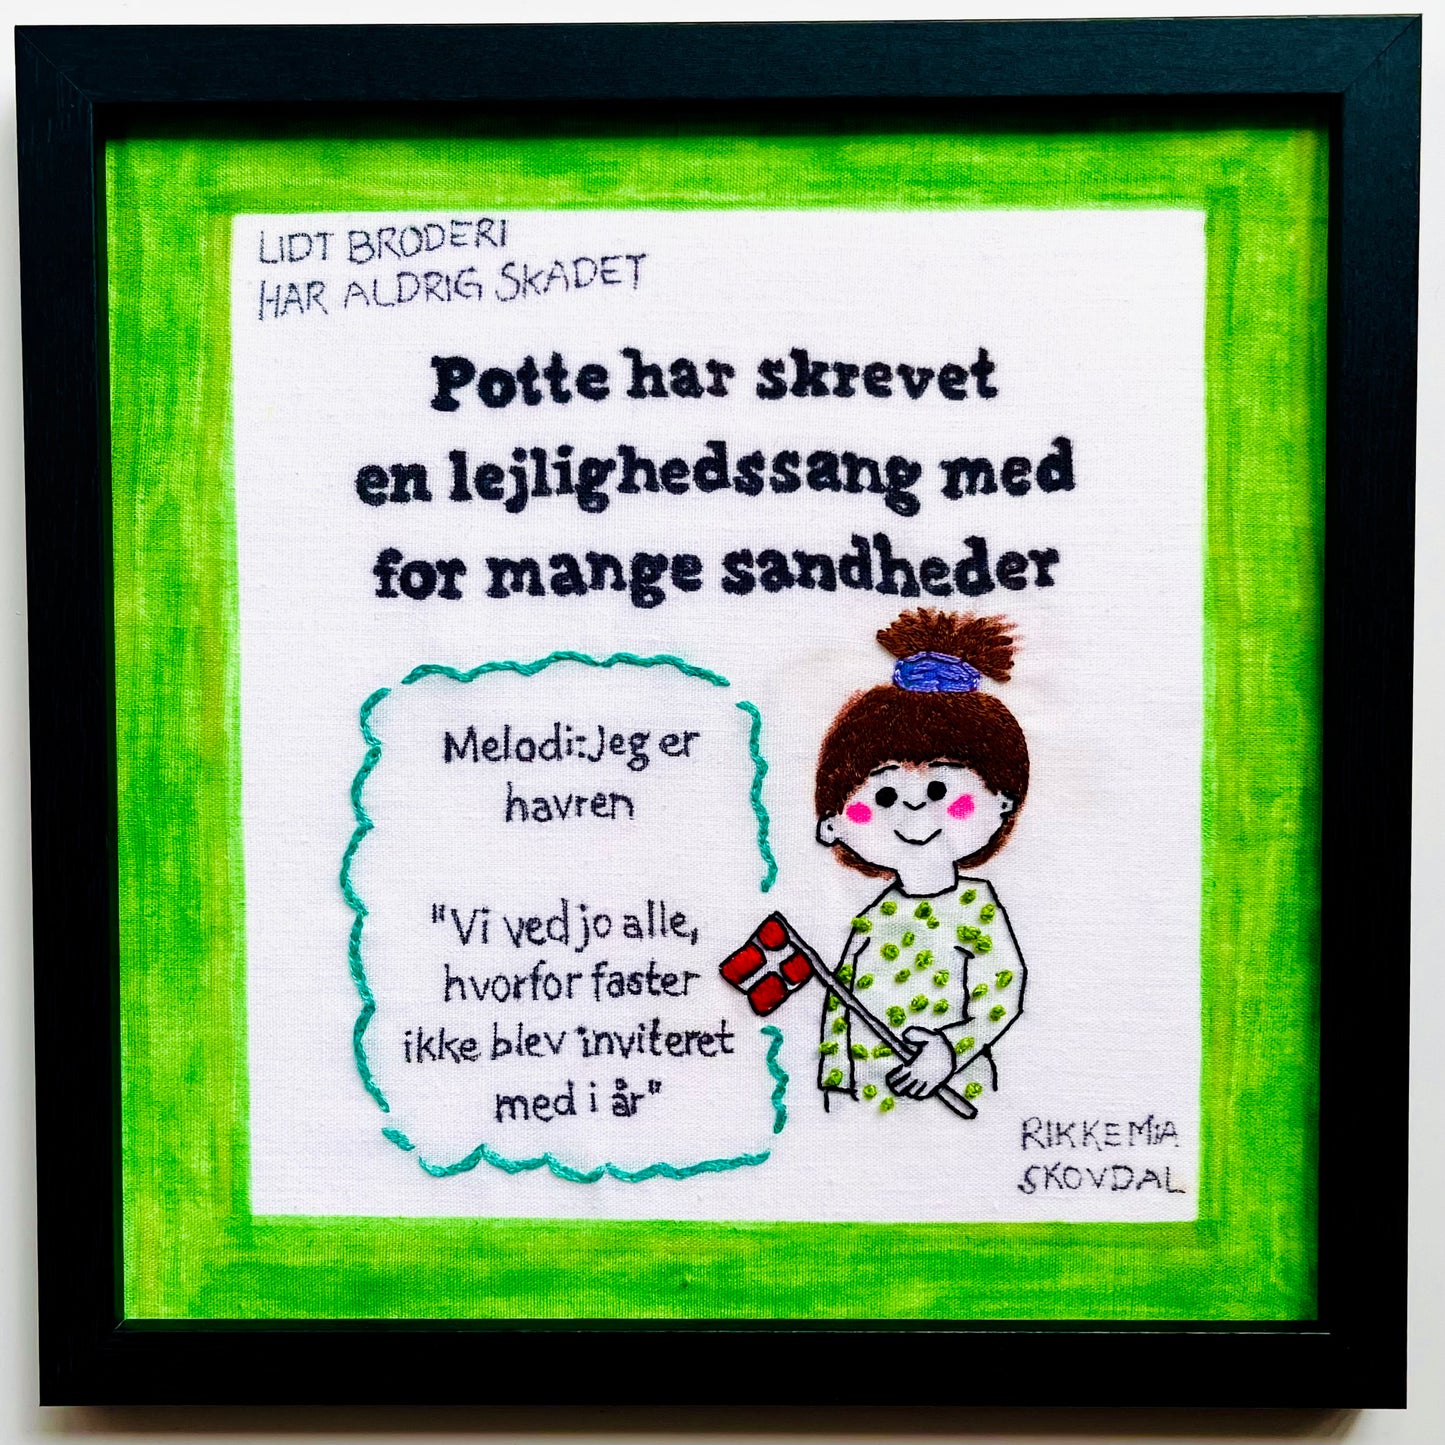 LIDT BRODERI
HAR ALDRIG SKADET
Potte har skrevet
en lejlighedssang med
for mange sandheder
Melodi: Jeg er
havren
"Vi ved jo alle,
hvorfor faster
ikke blev inviteret
med i år"
RIKKE MIA
SKOVDAL